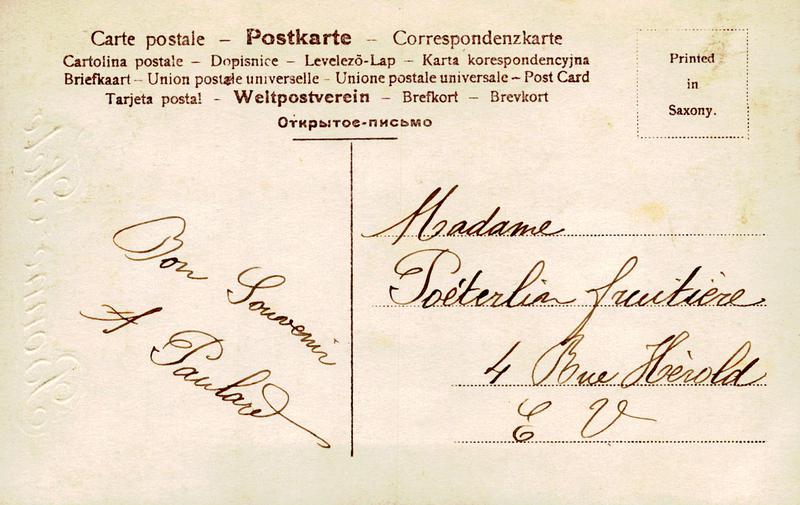 Carte postale – Postkarte – Correspondenzkarte
Cartolina postale – Dopisnice – Levelező-Lap – Karta korespondencyjna
Briefkaart – Union postale universelle – Unione postale universale – Post Card
Tarjeta postal - Weltpostverein – Brefkort – Brevkort
Открытое-письмо
Printed
in
Saxony.
Bon Souvenir
A Paulard
Madame
Poéterlin fruitière
4 Rue Hérold
E V